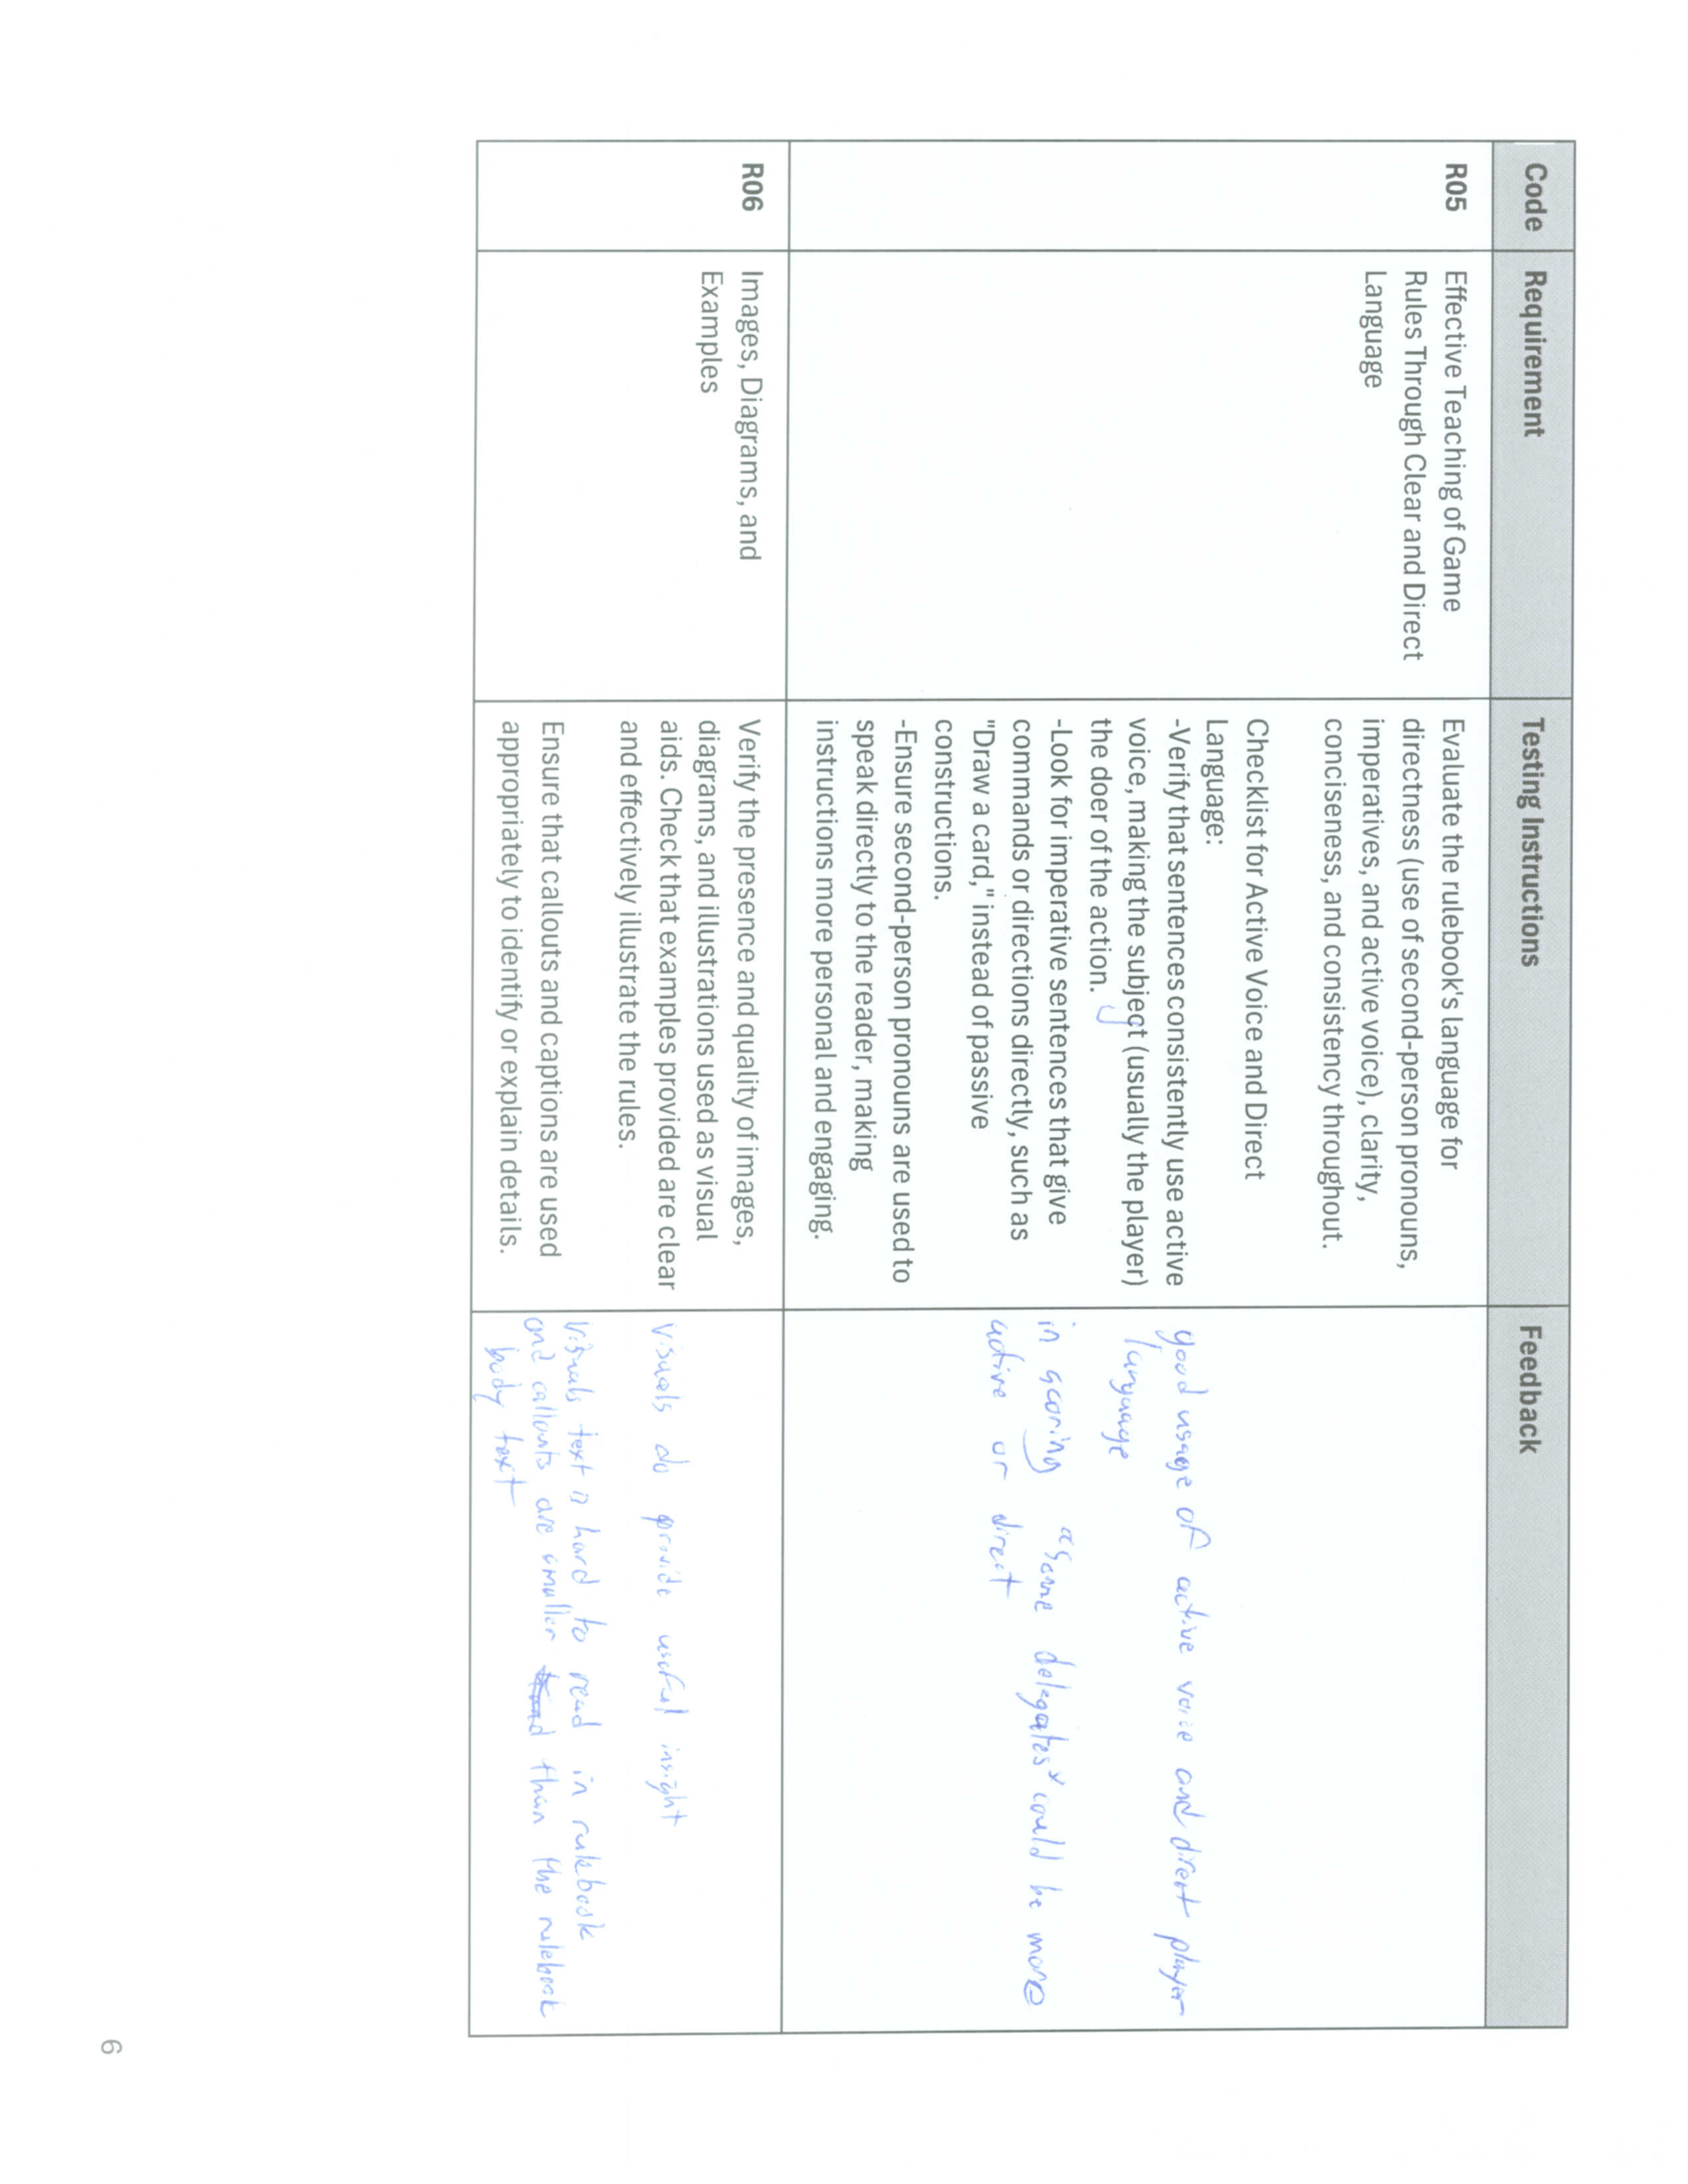 Code Requirement Testing Instructions Feedback
R05
Effective Teaching of Game
Rules Through Clear and Direct
Language
Evaluate the rulebook's language for
directness (use of second-person pronouns,
imperatives, and active voice), clarity,
conciseness, and consistency throughout.
Checklist for Active Voice and Direct
Language:
-Verify that sentences consistently use active
voice, making the subject (usually the player)
the doer of the action.
-Look for imperative sentences that give
commands or directions directly, such as
"Draw a card," instead of passive
constructions.
-Ensure second-person pronouns are used to
speak directly to the reader, making
instructions more personal and engaging.
good usage of active voice and direct player
language
in scoring delegates could be more
active or direct
R06
Images, Diagrams, and
Examples
Verify the presence and quality of images,
diagrams, and illustrations used as visual
aids. Check that examples provided are clear
and effectively illustrate the rules.
Ensure that callouts and captions are used
appropriately to identify or explain details.
visuals do provide useful insight
Visuals text is hard to read in rulebook
and callouts are smaller than the rulebook
body text
6